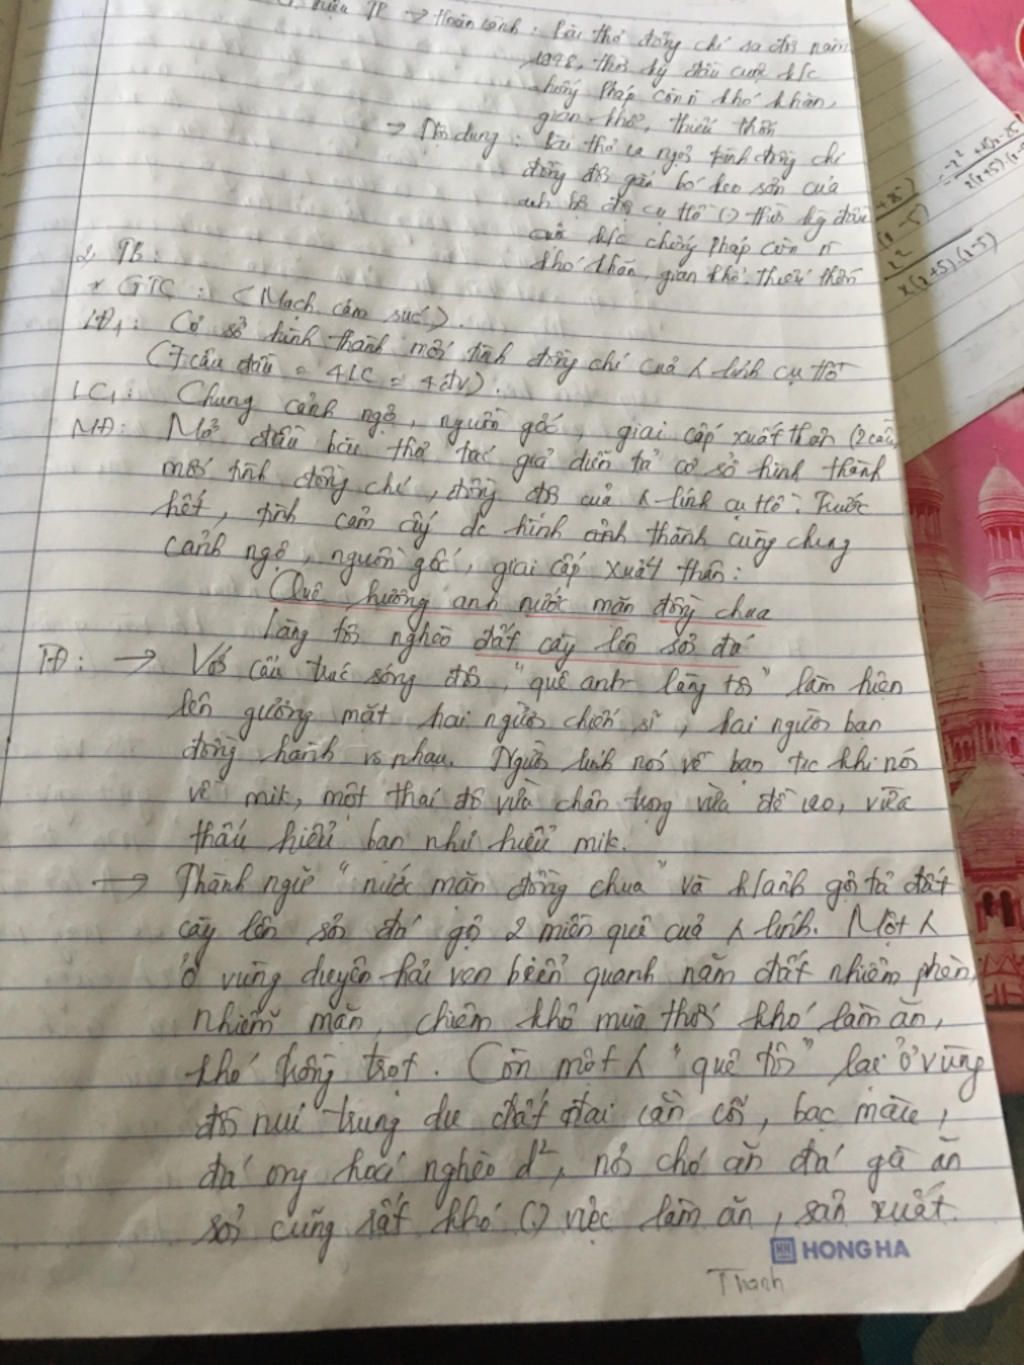 TP → Hoàn cảnh : Bài thơ đồng chí ra đời năm
1948, thời kỳ đầu cuộc k/c
chống Pháp còn n khó khăn,
gian khổ, thiếu thốn
→ Nội dung : Bài thơ ca ngợi tình đồng chí
đồng đội gắn bó keo sơn của
anh bộ đội cụ Hồ () thời kỳ đầu
k/c chống Pháp còn n
khó khăn, gian khổ, thiếu thốn
2, TB :
* GTC : (Mạch cảm xúc).
LĐ1 : Cơ sở hình thành mối tình đồng chí của λ lính cụ Hồ
(7 câu đầu = 4LC = 4đv).
LC1 : Chung cảnh ngộ, nguồn gốc, giai cấp xuất thân (2 câu
MĐ: Mở đầu bài thơ tác giả diễn tả cơ sở hình thành
mối tình đồng chí, đồng đội của λ lính cụ Hồ. Trước
hết, tình cảm ấy dc hình thành cùng chung
cảnh ngộ, nguồn gốc, giai cấp xuất thân :
Quê hương anh nước mặn đồng chua
Làng tôi nghèo đất cày lên sỏi đá
TĐ : → Với cấu trúc sóng đôi, "quê anh - làng tôi" làm hiện
lên gương mặt hai người chiến sĩ, hai người bạn
đồng hành vs nhau. Người lính nói về bạn trc khi nói
về mik, một thái độ vừa chân trọng vừa đề cao, vừa
thấu hiểu bạn như hiểu mik.
→ Thành ngữ "nước mặn đồng chua" và h/ảnh gợi tả đất
cày lên sỏi đá gợi 2 miền quê của λ lính. Một λ
ở vùng duyên hải ven biển quanh năm đất nhiễm phèn,
nhiễm mặn, chiêm khô mùa thối khó làm ăn,
khó trồng trọt. Còn một λ "quê tôi" lại ở vùng
đồi núi trung du đất đai cằn cỗi, bạc màu,
đá ong hoá nghèo d², nơi chó ăn đá gà ăn
sỏi cũng rất khó () việc làm ăn, sản xuất.
HONG HA
Thanh
x(x+5).(x-5)